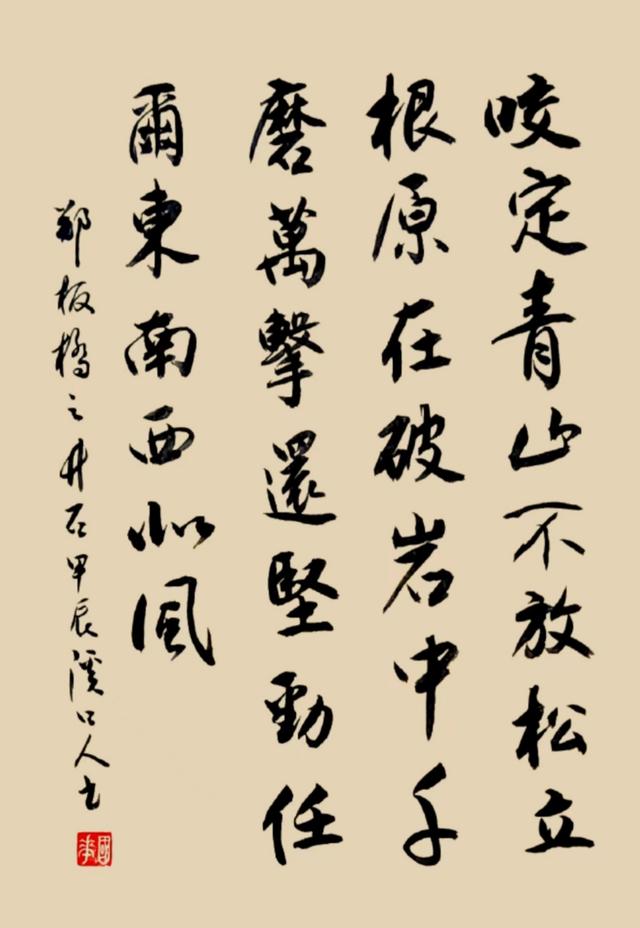 咬定青山不放松立
根原在破岩中千
磨萬擊還堅勁任
爾東南西北風
郑板橋之竹石甲辰溪口人书